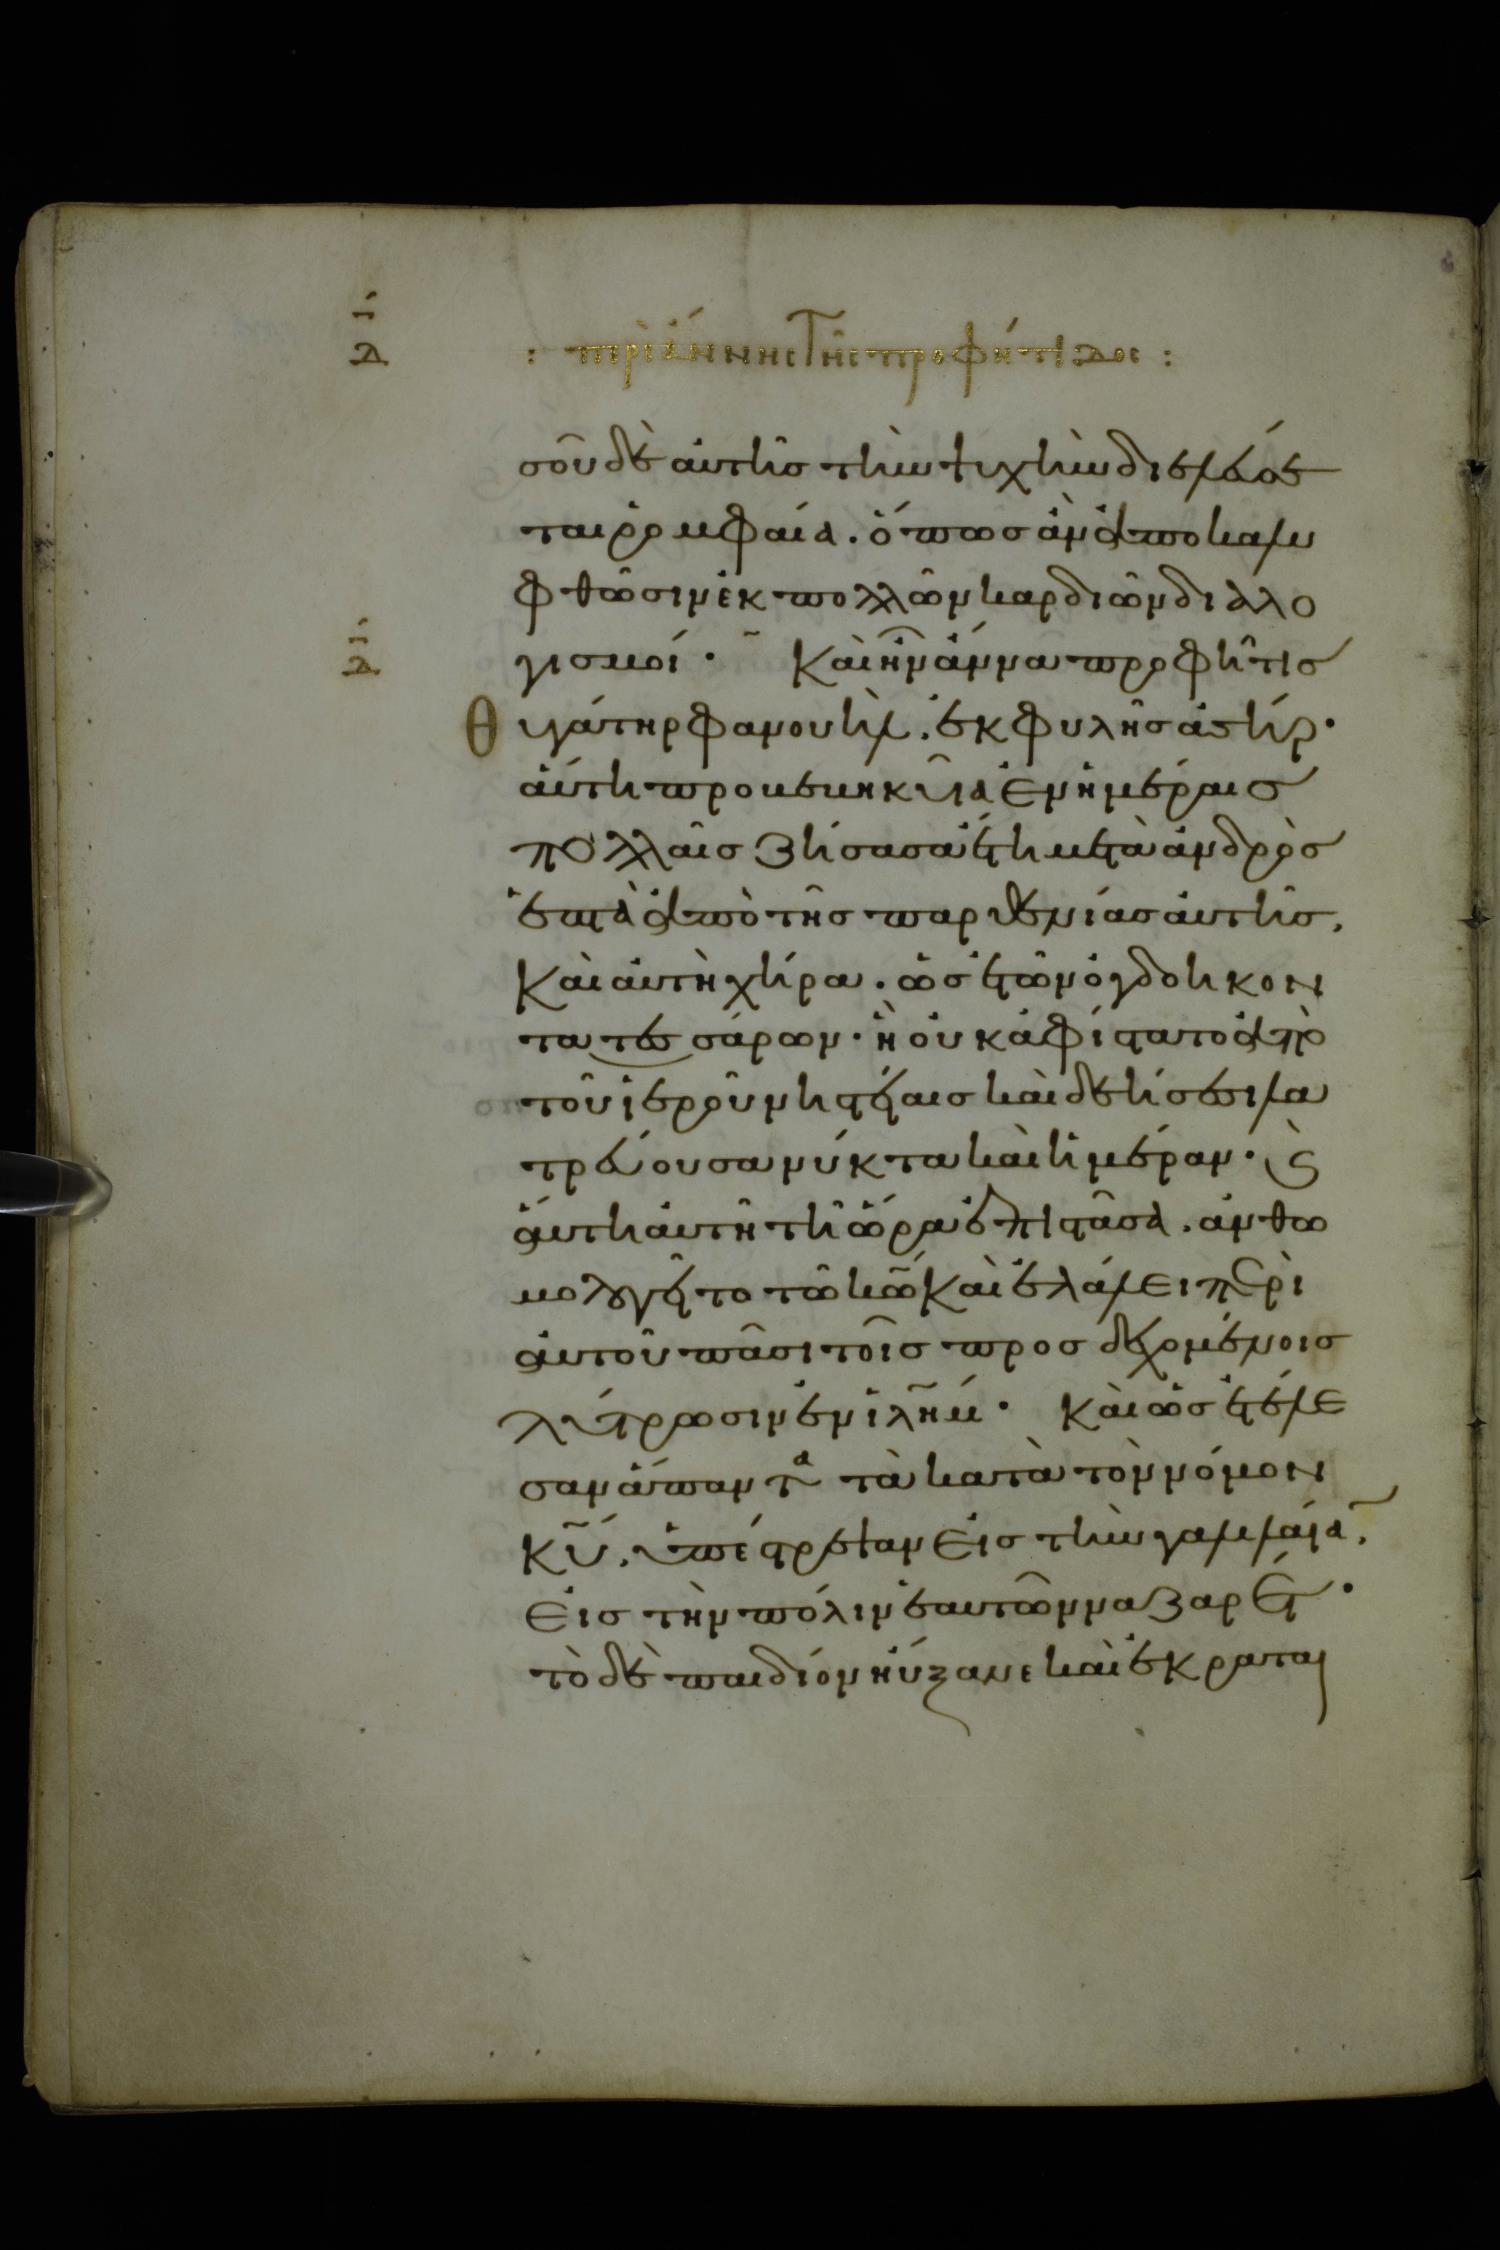 Δ Ι
: περὶ ἄννης τῆς προφήτιδος :
σοῦ δὲ αὐτῆσ τὴν ψυχὴν διελεύσε
ται ῥομφαία. ὅπωσ ἂν ἀποκαλυ
φθῶσιν ἐκ πολλῶν καρδιῶν διαλο
Δ Ι
γισμοί· Καὶ ἦν ἄννα προφῆτισ
Θυγάτηρ φανουὴλ. ἐκ φυλῆσ ἀσήρ·
αὕτη προβεβηκυῖα ἐν ἡμέραισ
πολλαῖσ ζήσασα ἔτη μετὰ ἀνδρὸσ
ἑπτὰ ἀπὸ τῆσ παρθενίασ αὐτῆσ.
Καὶ αὐτὴ χήρα. ὡσ ἐτῶν ὀγδοήκον
τα τεσσάρων· ἣ οὐκ ἀφίστατο ἀπὸ
τοῦ ἱεροῦ νηστείαισ καὶ δεήσεσι λα
τρεύουσα νύκτα καὶ ἡμέραν· Ϛ̀
αὕτη αὐτῇ τῇ ὥρᾳ ἐπιστᾶσα. ἀνθω
μολογεῖτο τῷ κ̅ω̅ Καὶ ἐλάλει περὶ
αὐτοῦ πᾶσι τοῖσ προσδεχομένοισ
λύτρωσιν ἐν ἰλ̅η̅μ· Καὶ ὡσ ἐτέλε
σαν ἅπαντα τὰ κατὰ τὸν νόμον
κ̅υ̅. ὑπέστρεψαν εἰσ τὴν γαλιλαία̅.
εἰσ τὴν πόλιν ἑαυτῶν ναζαρέτ·
τὸ δὲ παιδίον ηὔξανε καὶ ἐκραται